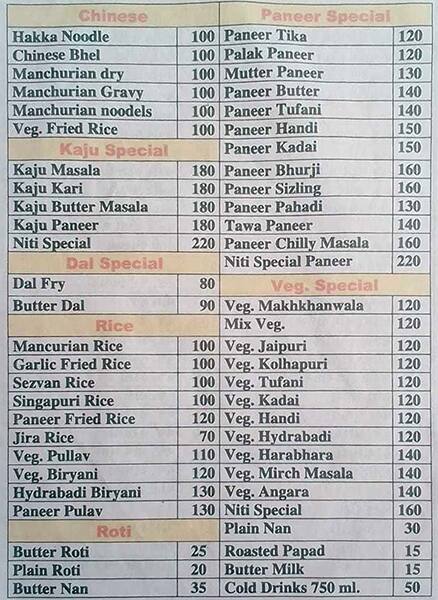 Chinese
Hakka Noodle 100
Chinese Bhel 100
Manchurian dry 100
Manchurian Gravy 100
Manchurian noodels 100
Veg. Fried Rice 100
Kaju Special
Kaju Masala 180
Kaju Kari 180
Kaju Butter Masala 180
Kaju Paneer 180
Niti Special 220
Dal Special
Dal Fry 80
Butter Dal 90
Rice
Mancurian Rice 100
Garlic Fried Rice 100
Sezvan Rice 100
Singapuri Rice 100
Paneer Fried Rice 120
Jira Rice 70
Veg. Pullav 110
Veg. Biryani 120
Hydrabadi Biryani 130
Paneer Pulav 130
Roti
Butter Roti 25
Plain Roti 20
Butter Nan 35
Paneer Special
Paneer Tika 120
Palak Paneer 120
Mutter Paneer 130
Paneer Butter 140
Paneer Tufani 140
Paneer Handi 150
Paneer Kadai 150
Paneer Bhurji 160
Paneer Sizling 160
Paneer Pahadi 130
Tawa Paneer 140
Paneer Chilly Masala 160
Niti Special Paneer 220
Veg. Special
Veg. Makhkhanwala 120
Mix Veg. 120
Veg. Jaipuri 120
Veg. Kolhapuri 120
Veg. Tufani 120
Veg. Kadai 120
Veg. Handi 120
Veg. Hydrabadi 120
Veg. Harabhara 140
Veg. Mirch Masala 140
Veg. Angara 140
Niti Special 160
Plain Nan 30
Roasted Papad 15
Butter Milk 15
Cold Drinks 750 ml. 50